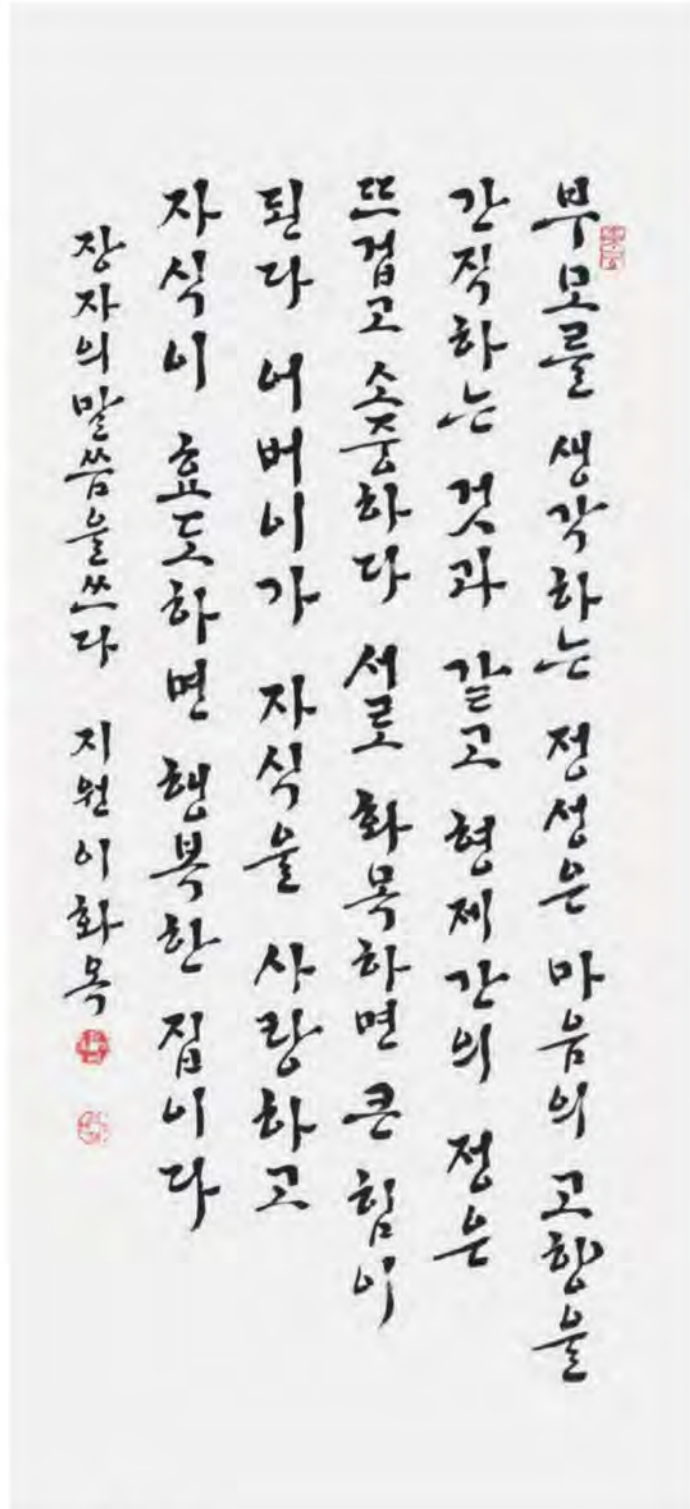 부모를 생각하는 정성은 마음의 고향을
간직하는 것과 같고 형제간의 정은
뜨겁고 소중하다 서로 화목하면 큰 힘이
된다 어버이가 자식을 사랑하고
자식이 효도하면 행복한 집이다
장자의말씀을쓰다 지원이화옥